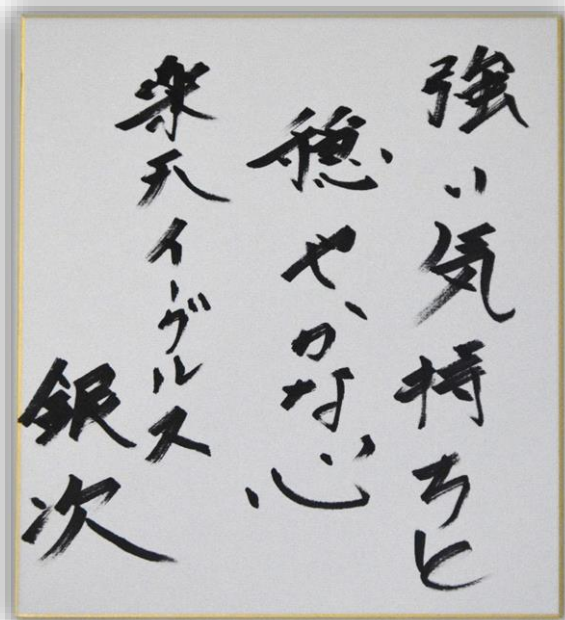 強い気持ちと
穏やかな心
楽天イーグルス
銀次